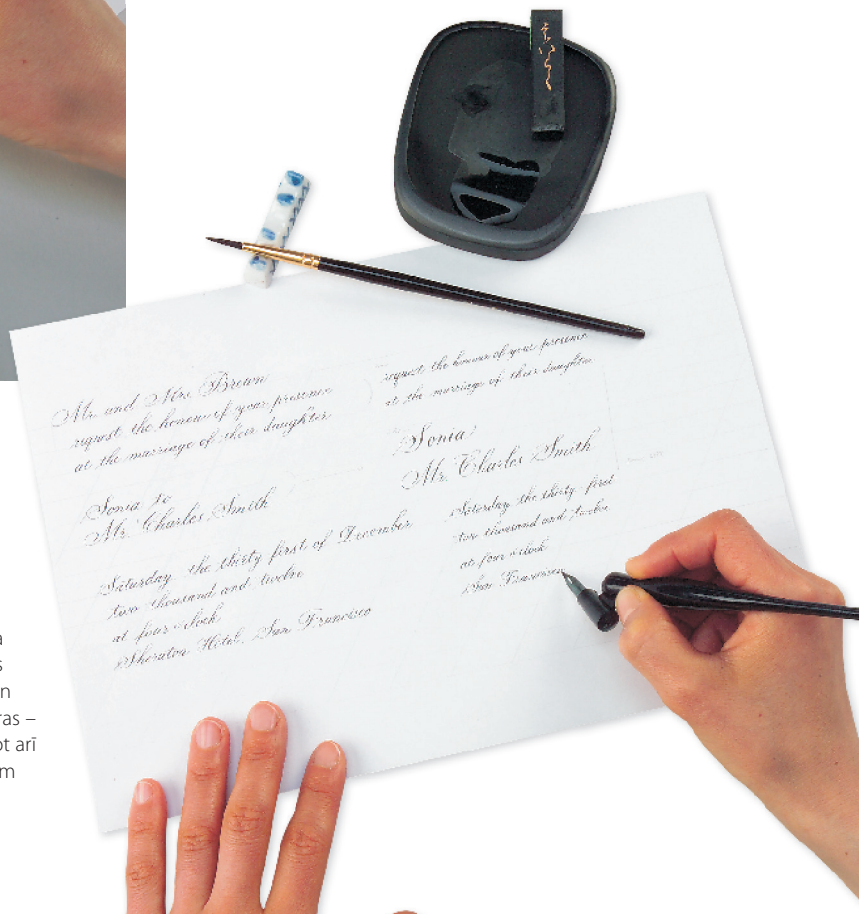 Mr. and Mrs. Brown
request the honour of your presence
at the marriage of their daughter
Sonia to
Mr. Charles Smith
Saturday the thirty first of December
two thousand and twelve
at four o'clock
Sheraton Hotel, San Francisco
request the honour of your presence
at the marriage of their daughter
Sonia
Mr. Charles Smith
Saturday the thirty first
two thousand and twelve
at four o'clock
San Francisco
a
s
n
ras –
ot arī
m